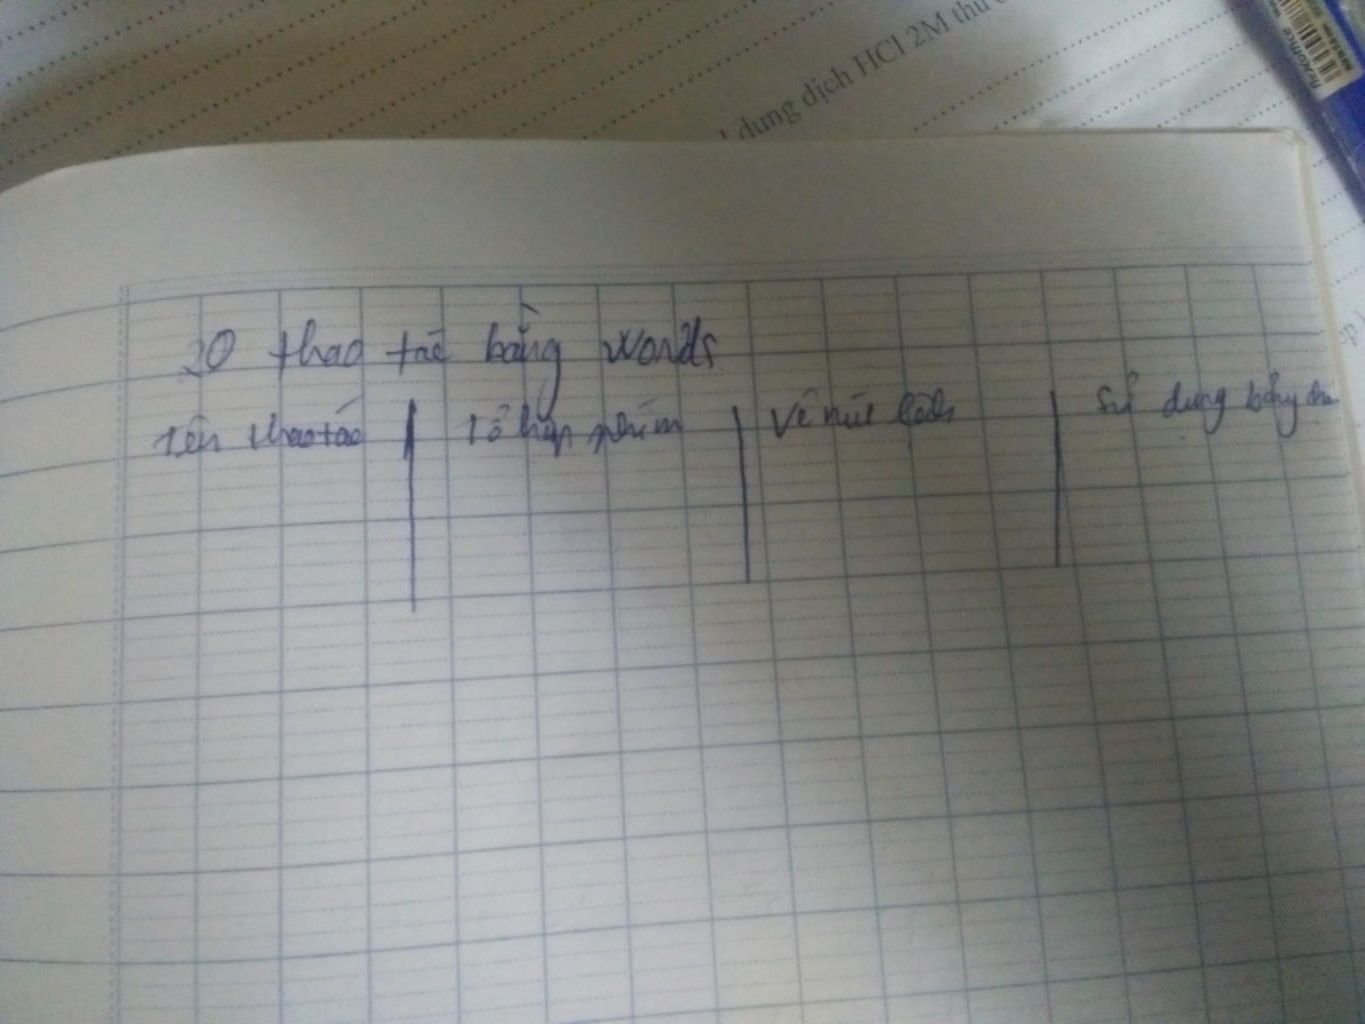 dung dịch HCl 2M thu
FlexOffice
20 thao tác bằng words
Tên thao tác | Tổ hợp phím | Vẽ nút lệnh | Sử dụng bảng